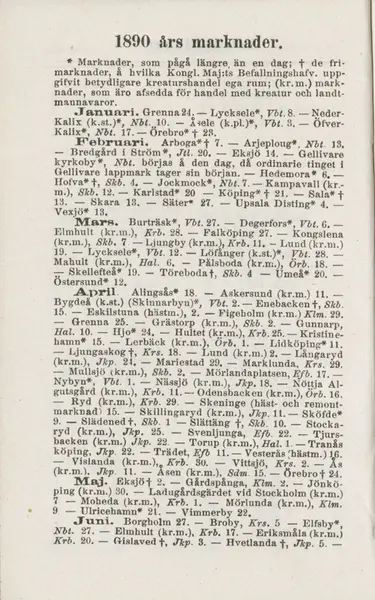 1890 års marknader.
* Marknader, som pågå längre än en dag; † de fri-
marknader, å hvilka Kongl. Maj:ts Befallningshafv. upp-
gifvit betydligare kreaturshandel ega rum; (kr.m.) mark-
nader, som äro afsedda för handel med kreatur och landt-
mannavaror.
Januari. Grenna 24. — Lycksele*, Vbt. 8. — Neder-
Kalix (k.st.)*, Nbt. 10. — Åsele (k.pl.)*, Vbt. 3. — Öfver-
Kalix*, Nbt. 17. — Örebro* † 23.
Februari. Arboga* † 7. — Arjeplog*, Nbt. 13.
— Bredgård i Ström*, Jtl. 20. — Eksjö 14. — Gellivare
kyrkoby*, Nbt. börjas å den dag, då ordinarie tinget i
Gellivare lappmark tager sin början. — Hedemora* 6. —
Hofva* †, Skb. 4. — Jockmock*, Nbt. 7. — Kampavall (kr.-
m.), Skb. 12. — Karlstad* 20 — Köping* † 21. — Sala* †
13. — Skara 13. — Säter* 27. — Upsala Disting* 4. —
Vexjö* 13.
Mars. Burträsk*, Vbt. 27. — Degerfors*, Vbt. 6. —
Elmhult (kr.m.), Krb. 28. — Falköping 27. — Kongslena
(kr.m.), Skb. 7 — Ljungby (kr.m.), Krb. 11. — Lund (kr.m.)
19. — Lycksele*, Vbt. 12. — Löfånger (k.st.)*, Vbt. 28. —
Mahult (kr.m.), Hal. 6. — Pålsboda (kr.m.), Örb. 18. —
— Skellefteå* 19. — Töreboda†, Skb. 4 — Umeå* 20. —
Östersund* 12.
April. Alingsås* 18. — Askersund (kr.m.) 11. —
Bygdeå (k.st.) (Skinnarbyn)*, Vbt. 2. — Enebacken †, Skb.
15. — Eskilstuna (hästm.), 2. — Figeholm (kr.m.) Klm. 29.
— Grenna 25. — Grästorp (kr.m.), Skb. 2. — Gunnarp,
Hal. 10. — Hjo* 24. — Hultet (kr.m.), Krb. 25. — Kristine-
hamn* 15. — Lerbäck (kr.m.), Örb. 1. — Lidköping* 11.
— Ljungaskog †, Krs. 18. — Lund (kr.m.) 2. — Långaryd
(kr.m.), Jkp. 24. — Mariestad 29. — Marklunda, Krs. 29.
— Mullsjö (kr.m.), Skb. 2, — Mörlandaplatsen, Efb. 17. —
Nybyn*, Vbt. 1. — Nässjö (kr.m.), Jkp. 18. — Nöttja Al-
gutsgård (kr.m.), Krb. 11. — Odensbacken (kr.m.), Örb. 16.
— Ryd (kr.m.), Krb. 29. — Skeninge (häst- och remont-
marknad) 15. — Skillingaryd (kr.m.), Jkp. 11. — Sköfde*
9. — Slädened†, Skb. 1. — Slättäng †, Skb. 10. — Stocka-
ryd (kr.m.), Jkp. 25. — Svenljunga, Efb. 22. — Tjurs-
backen (kr.m.), Jkp. 22. — Torup (kr.m.), Hal. 1. — Tranås
köping, Jkp. 22. — Trädet, Efb 11. — Vesterås (hästm.) 16.
— Vislanda (kr.m.), Krb. 30. — Vittsjö, Krs. 2. — Ås
(kr.m.), Jkp. 11. — Åsen (kr.m.), Sdm. 15. — Örebro † 24.
Maj. Eksjö † 2. — Gårdspånga, Klm. 2. — Jönkö-
ping (kr.m.) 30. — Ladugårdsgärdet vid Stockholm (kr.m.)
7 — Moheda (kr.m.), Krb. 1. — Mörlunda (kr.m.), Klm.
9 — Ulricehamn* 21. — Vimmerby 22.
Juni. Borgholm 27. — Broby, Krs. 5 — Elfsby*,
Nbt. 27. — Elmhult (kr.m.), Krb. 17. — Eriksmåla (kr.m.)
Krb. 20. — Gislaved †, Jkp. 3. — Hvetlanda †, Jkp. 5. —